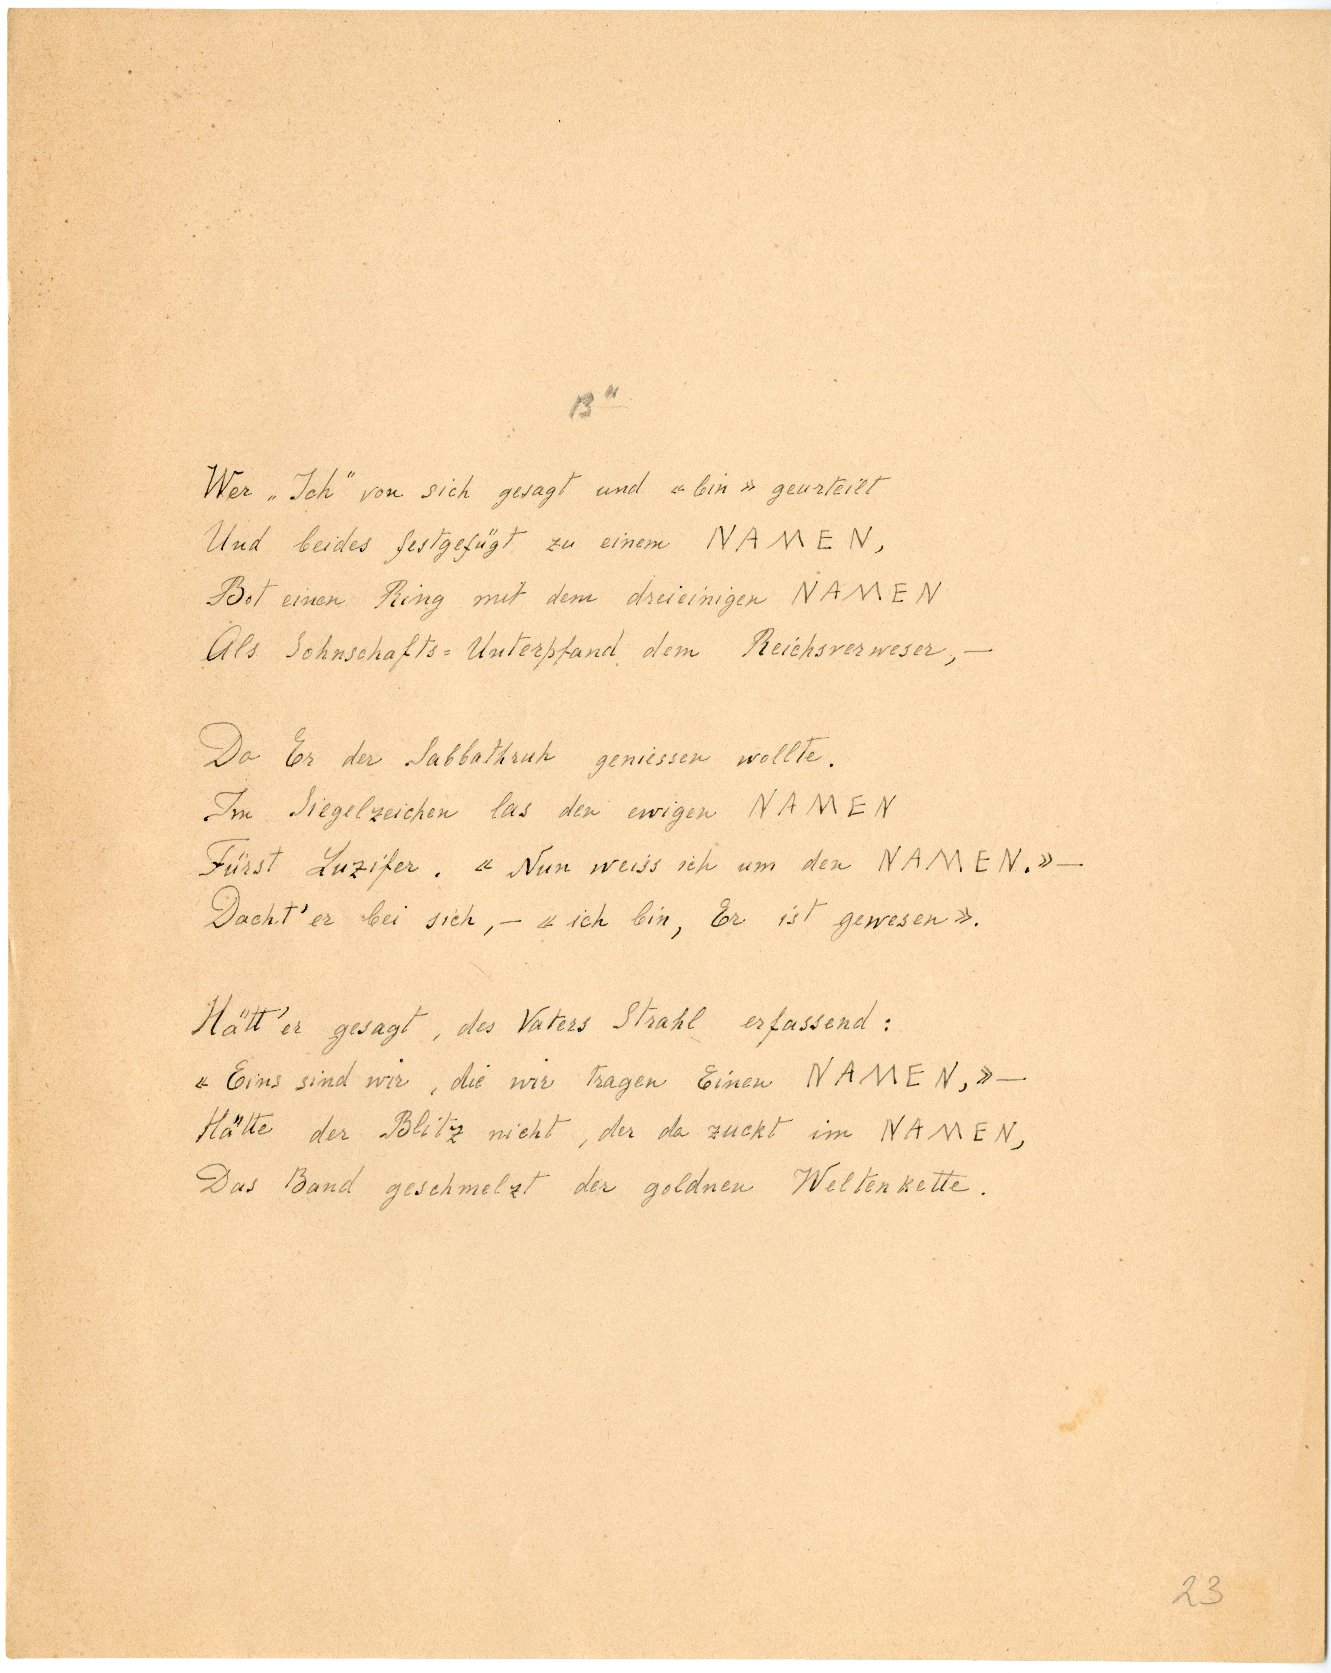 B"
Wer „Ich“ von sich gesagt und « bin » geurteilt
Und beides festgefügt zu einem NAMEN,
Bot einen Ring mit dem dreieinigen NAMEN
Als Sohnschafts=Unterpfand dem Reichsverweser,—
Da Er der Sabbathruh geniessen wollte.
Im Siegelzeichen las den ewigen NAMEN
Fürst Luzifer. « Nun weiss ich um den NAMEN.»—
Dacht'er bei sich,— « ich bin, Er ist gewesen».
Hätt'er gesagt, des Vaters Strahl erfassend:
« Eins sind wir, die wir tragen Einen NAMEN,»—
Hätte der Blitz nicht, der da zuckt im NAMEN,
Das Band geschmelzt der goldnen Weltenkette.
23